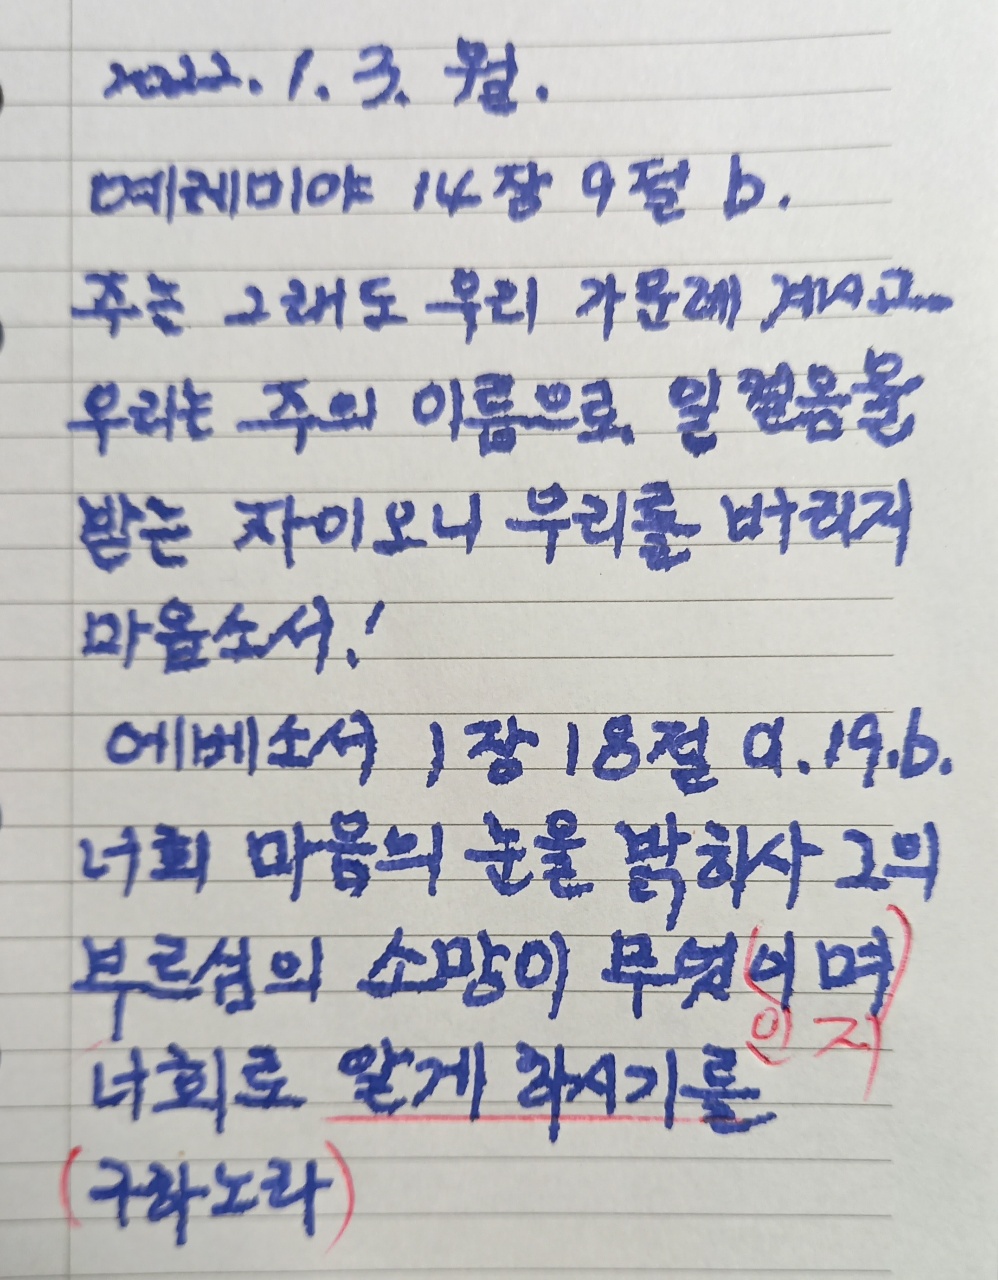 2022. 1. 3. 월.
예레미야 14장 9절 b.
주는 그래도 우리 가운데 계시고
우리는 주의 이름으로 일컬음을
받는 자이오니 우리를 버리지
마옵소서!
에베소서 1장 18절 a. 19.b.
너희 마음의 눈을 밝히사 그의
부르심의 소망이 무엇(이며)
인지
너희로 알게 하시기를
(구하노라)